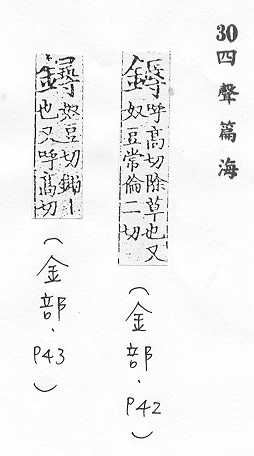 30四聲篇海
呼高切除草也又
奴豆常倫二切
(金部.P42)
奴豆切鋤丨
也又呼高切
(金部.P43)